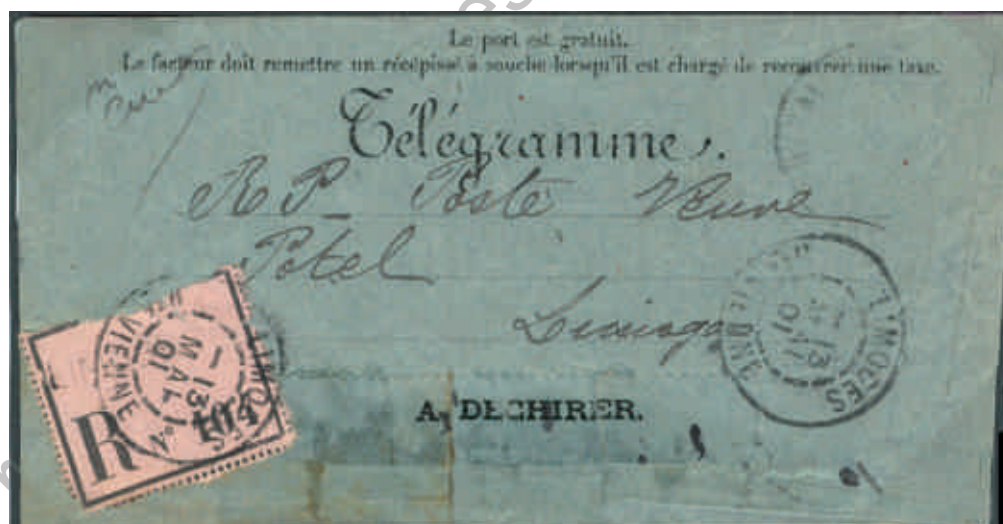 Le port est gratuit.
Le facteur doit remettre un récépissé à souche lorsqu'il est chargé de recouvrer une taxe.
Télégramme.
RP Poste Veuve
Potel
Limoges
A DECHIRER.
R 104
LIMOGES
VIENNE
13
MAI
01
LIMOGES
VIENNE
13
01